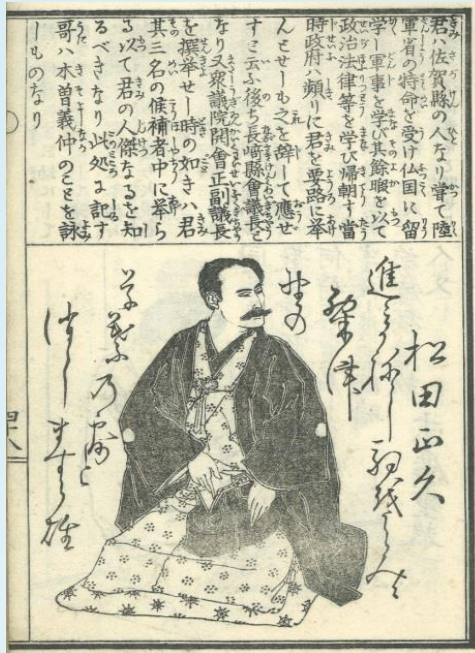 君ハ佐賀縣の人なり甞て陸
軍省の特命を受け仏国に留
学し軍事を学び其餘暇を以て
政治法律等を学び帰朝す當
時政府ハ頻りに君を要路に挙
んとせしも之を辞して應せ
すと云ふ後ち長﨑縣會議長と
なり又衆議院開會正副議長
を撰挙せし時の如きハ君
其三名の候補者中に挙ら
る以て君の人傑なるを知
るべきなり此処に記す
哥ハ木曽義仲のことを詠
しものなり
松田正久
粟津
野の
草葉乃露と
消しますら雄
四八